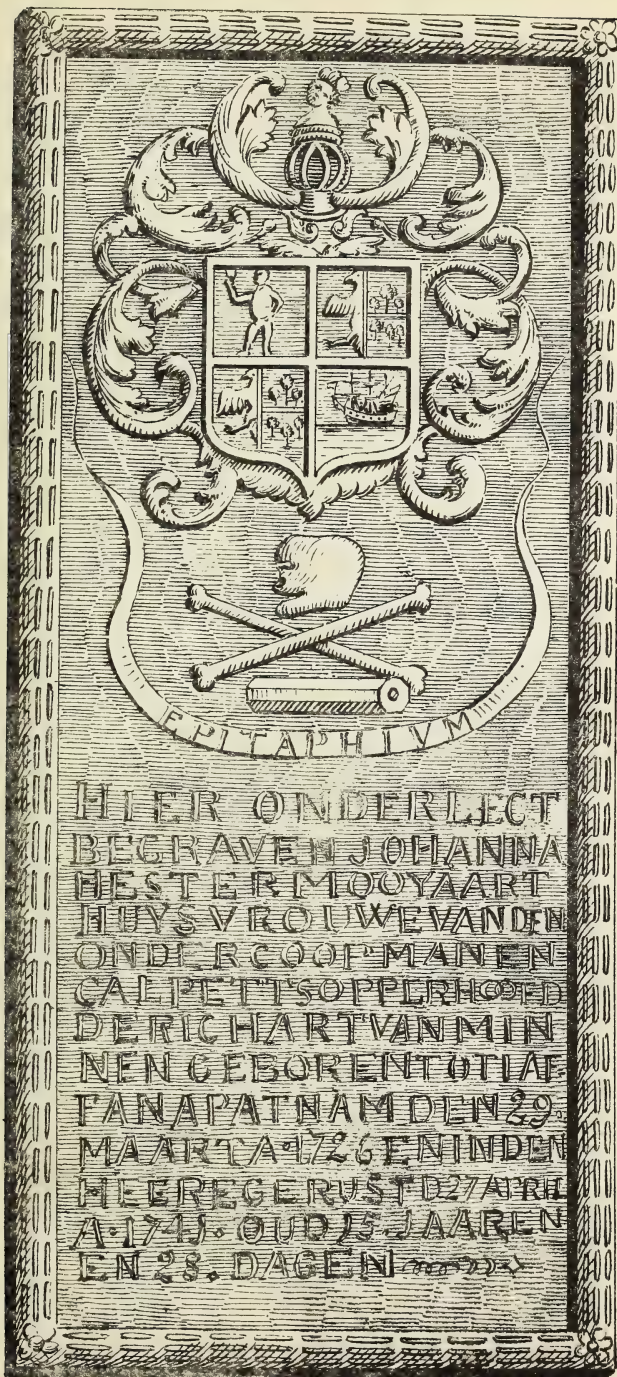 EPITAPHIVM
HIER ONDERLECT
BEGRAVEN JOHANNA
HESTER MOOYAART
HUYSVROUWE VAN DEN
ONDERCOOPMAN EN
CALPETTS OPPERHOOFD
DERICHART VAN MIN
NEN GEBOREN TOT IAF-
FANAPATNAM DEN 29.
MAART A. 1726 EN IN DEN
HEERE GERUST D 27 APRIL
A. 1741. OUD 15. JAAREN
EN 28. DAGEN